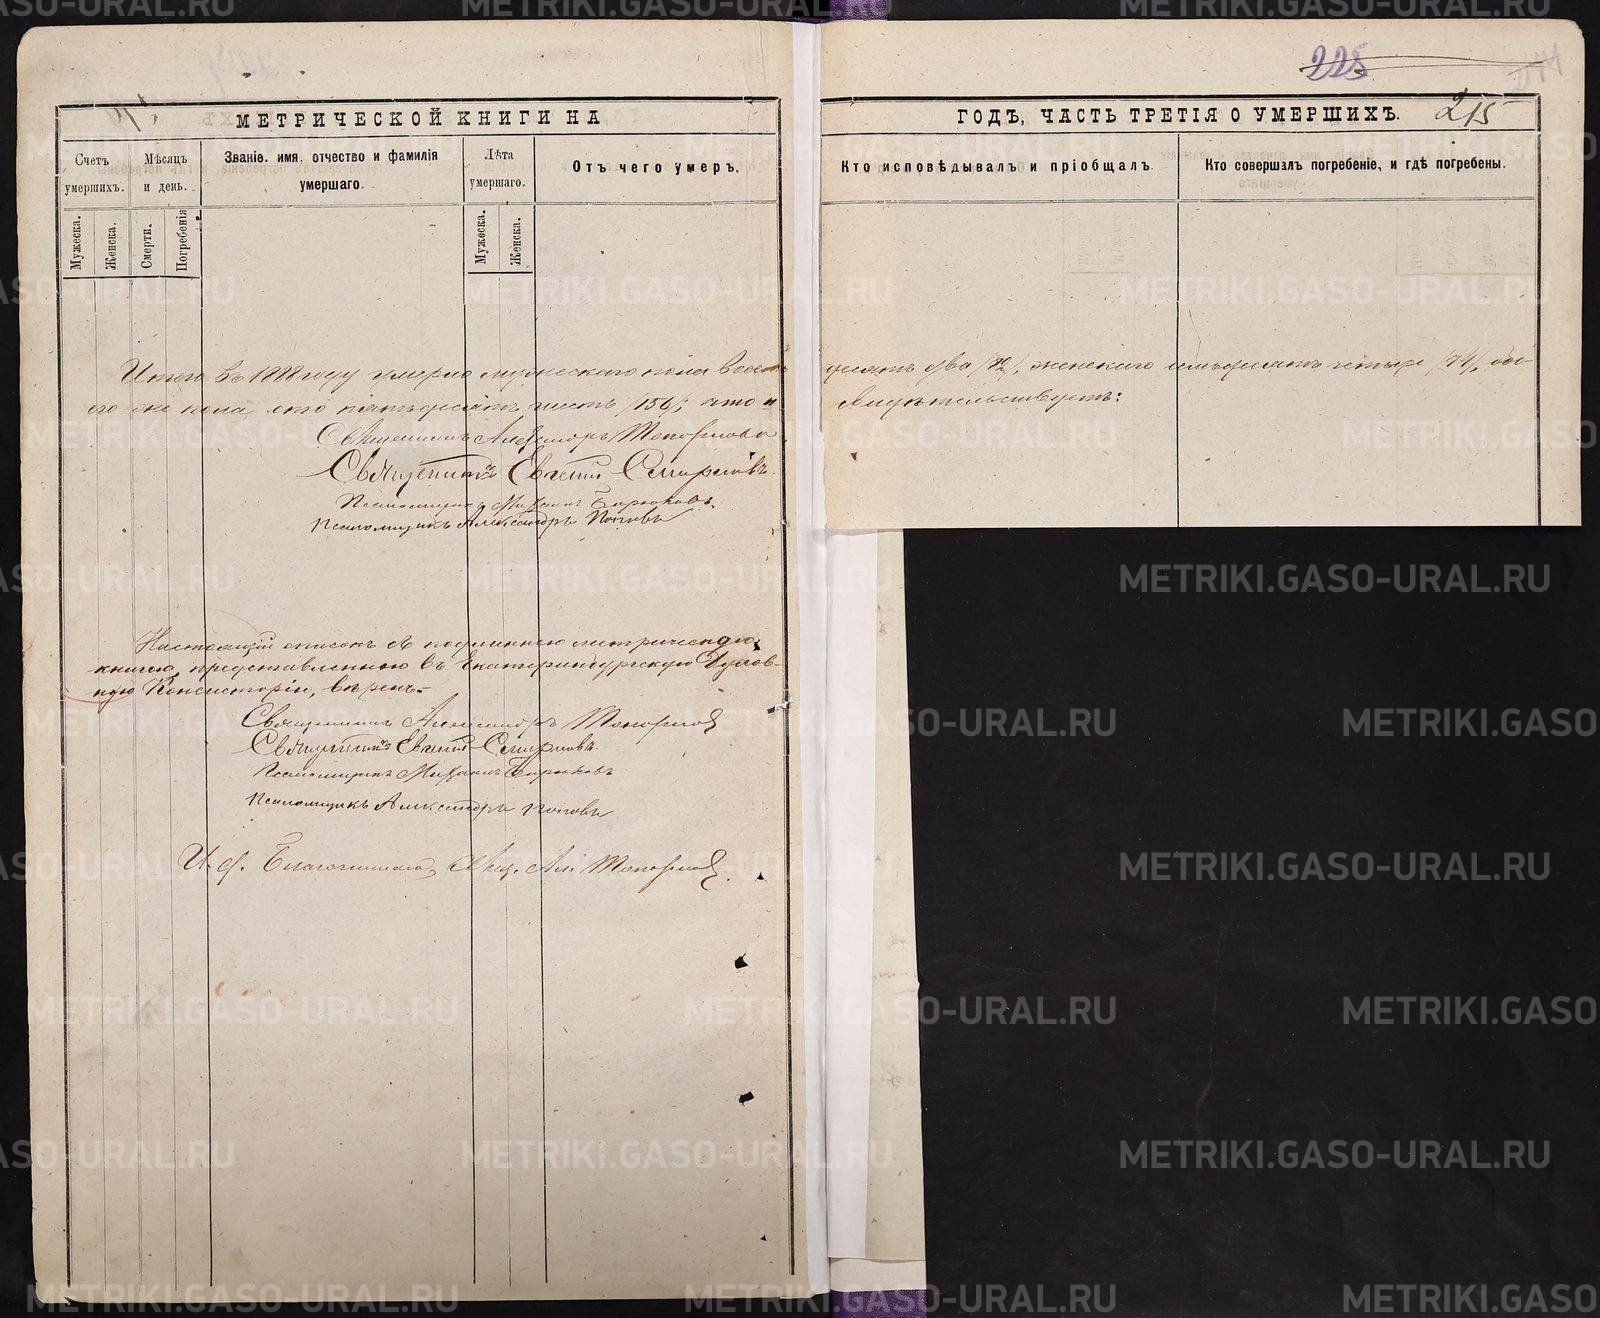 225
МЕТРИЧЕСКОЙ КНИГИ НА ГОДЪ, ЧАСТЬ ТРЕТІЯ О УМЕРШИХЪ. 215
Счетъ умершихъ.
Мѣсяцъ и день.
Званіе, имя, отчество и фамилія умершаго.
Лѣта умершаго.
Отъ чего умеръ.
Кто исповѣдывалъ и пріобщалъ
Кто совершалъ погребеніе, и гдѣ погребены.
Мужеска.
Женска.
Смерти.
Погребенія
Мужеска.
Женска.
Итого въ 1888 году умерло мужескаго пола восемь десятъ два /82/, женскаго семьдесятъ четыре /74/, обо-
его-же пола сто пятьдесятъ шесть /156/; что и свидѣтельствуетъ:
Священникъ Александръ Топорковъ
Священникъ Евгеній Смирновъ.
Псаломщикъ Михаилъ Бирюковъ.
Псаломщикъ Александръ Поповъ
Настоящій списокъ съ подлинною метрическою
книгою, представленною въ Екатеринбургскую Духов-
ную Консисторію, вѣренъ.
Священникъ Александръ Топорковъ
Священникъ Евгеній Смирновъ.
Псаломщикъ Михаилъ Бирюковъ
Псаломщикъ Александръ Поповъ
И. д. Благочиннаго, Свящ. Ал. Топорковъ.
METRIKI.GASO-URAL.RU